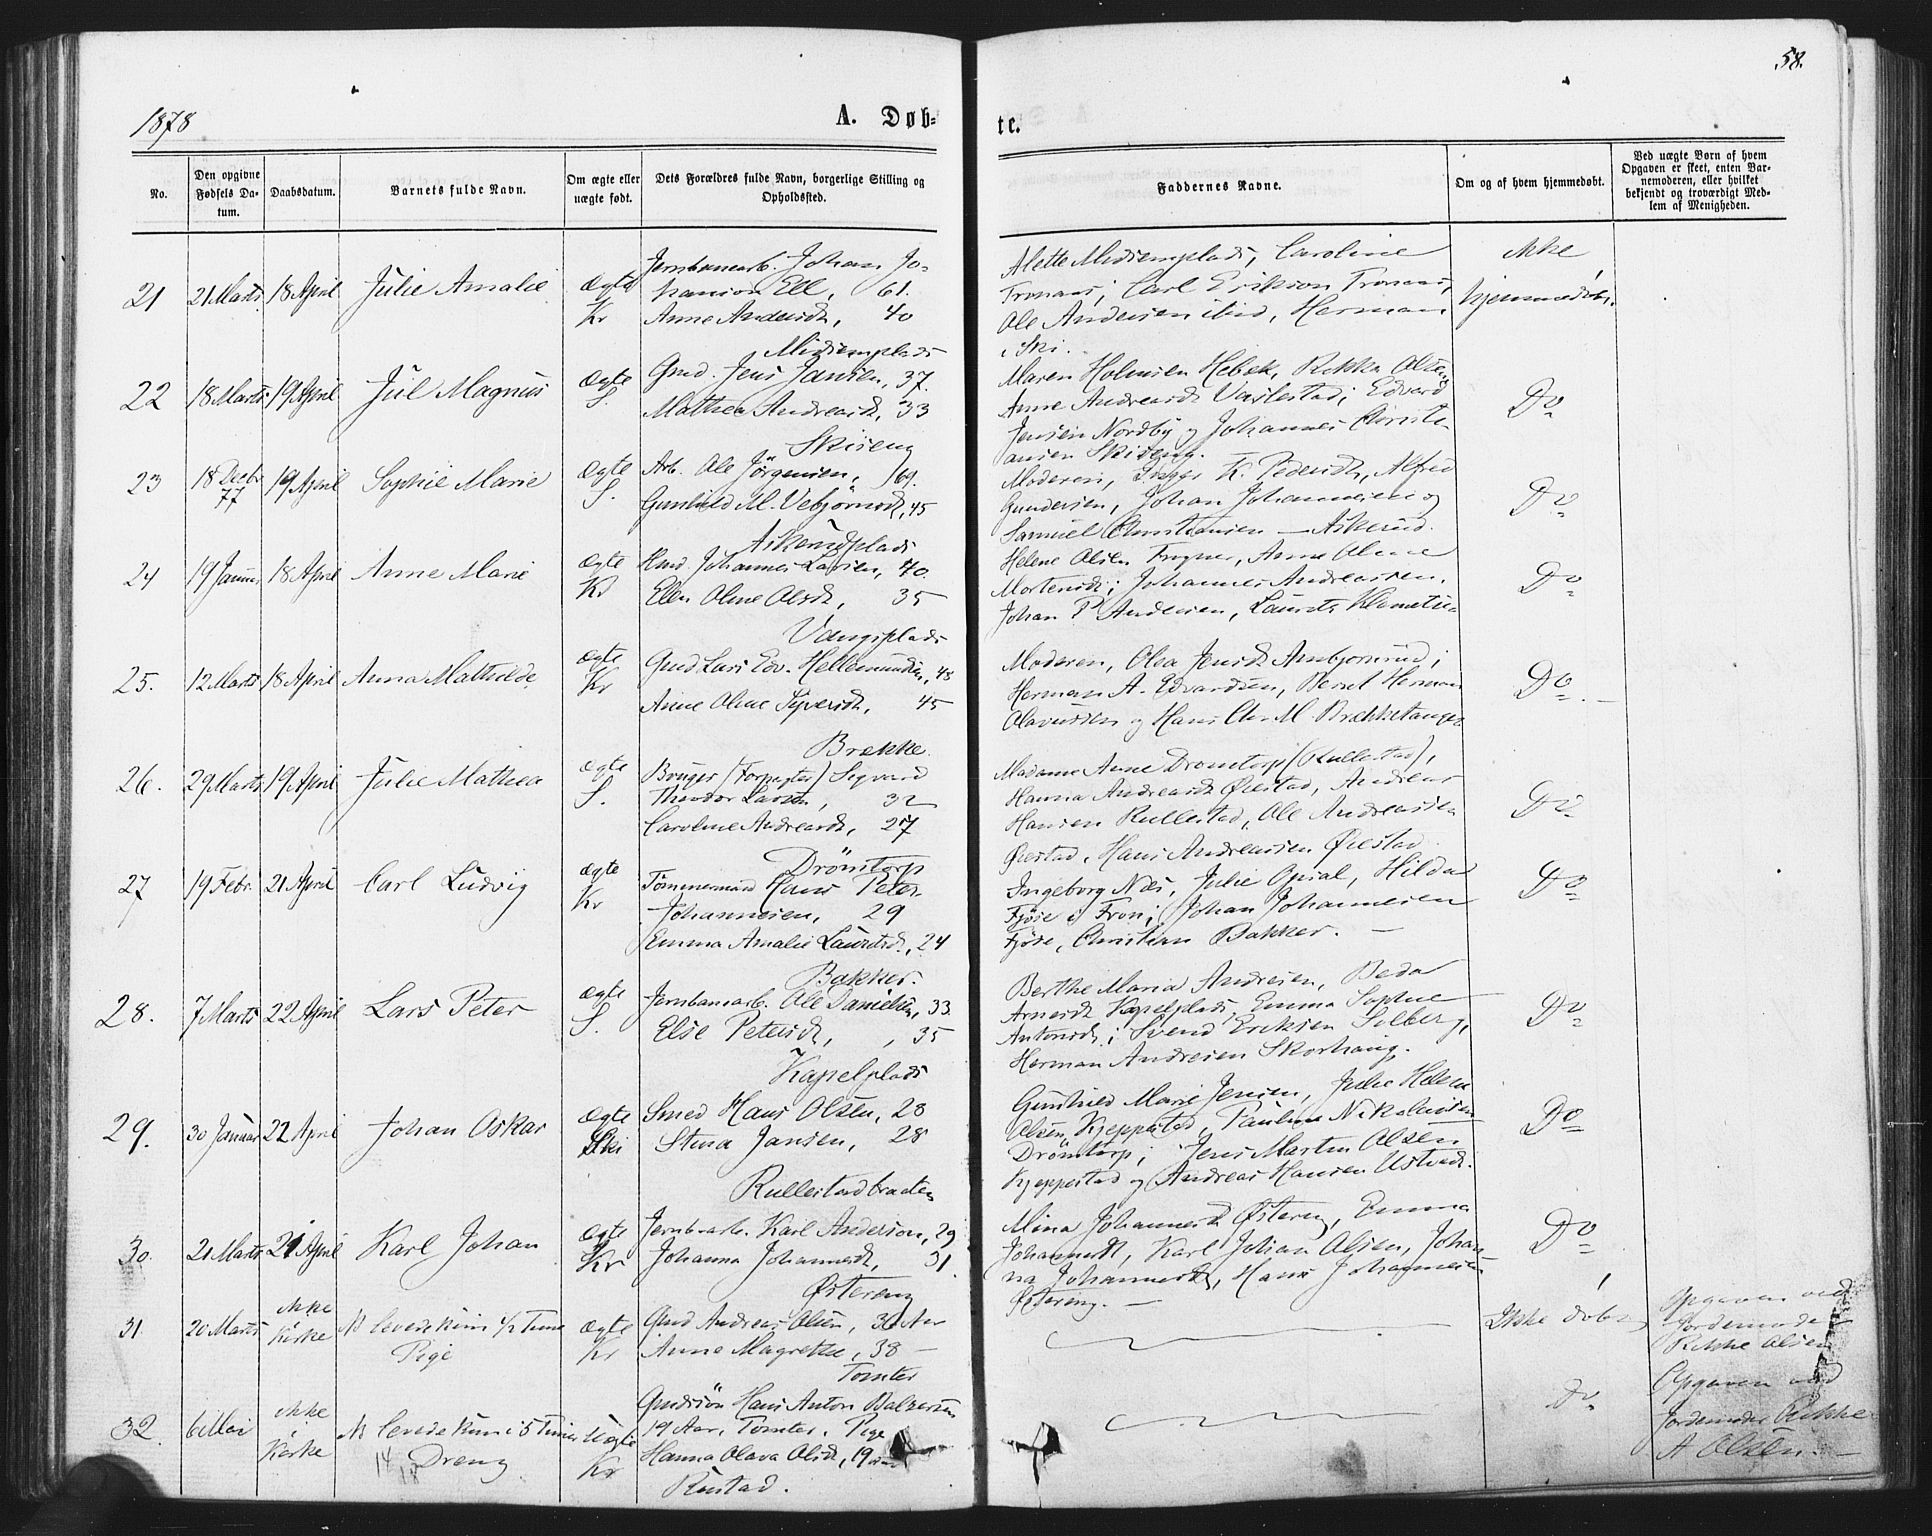 58.
1878
A. Døb-
te.
No.
Den opgivne Fødsels Da-tum.
Daabsdatum.
Barnets fulde Navn.
Om ægte eller uægte født.
Dets Forældres fulde Navn, borgerlige Stilling og Opholdssted.
Faddernes Navne.
Om og af hvem hjemmedøbt.
Ved uægte Børn af hvem Opgaven er skeet, enten Bar-nemoderen, eller hvilket bekjendt og troværdigt Med-lem af Menigheden.
21 21 Marts 18 April Julie Amalie ægte Kr
Jernbanearb. Johan Jo-
hanson Ell, 61.
Anne Andersdt, 40
Midsemplads
Alette Midsemplads, Caroline
Tronaas; Carl Erikson Tronaas,
Ole Andersen ibid, Herman
i Ski.
ikke
hjemmedøbt.
22 18 Marts 19 April Jul Magnus ægte S.
Gmd. Jens Jansen, 37.
Mathea Andreasdt, 33
Skiseng
Maren Holmsen Hebek, Rikka Olsen,
Anne Andreasdt Varlestad; Edvard
Jensen Nordby og Johannes Christi-
ansen Skiseng.
Do
23 18 Decbr 77 19 April Sophie Marie ægte S.
Arb. Ole Jörgensen, 69.
Gunhild M. Vebjörnsdt, 45
Askerudplads
Moderen, Inger K. Pedersdt, Alfred
Gundersen, Johan Johannesen og
Samuel Christiansen — Askerud.
Do
24 19 Januar 18 April Anne Marie ægte Kr
Hmd. Johannes Larsen, 40
Ellen Oline Olsdt, 35
Vangsplads
Helene Olsen Frogner, Anne Oline
Mortensdt; Johannes Andreassen,
Johan P Andersen, Laurits
Do
25. 12 Marts 18 April Anna Mathilde ægte Kr
Gmd Lars Edv. Hellemundsen, 48
Anne Oline Syversdt, 45
Brække
Moderen, Olea Jensdt Ambjornrud;
Herman A. Edvardsen, Bernt Herman
Olavussen og Hans Chr M. Brækketangen
Do
26. 29 Marts 19 April Julie Mathea ægte S.
Bruger (Forpagter) Sigvard
Theodor Larsen, 32
Caroline Andreasdt, 27
Drömtorp
Madame Anne Dromtorp (Rullestad),
Hanna Andreasdt Ørestad, Andreas
Hansen Rullestad, Ole Andreassen
Ørestad, Hans Andreassen Ørestad
Do
27 19 Febr. 21 April Carl Ludvig ægte Kr
Tömmermand Hans Peter
Johannesen, 29
Emma Amalie Lauritsdt, 24
Bakker.
Ingeborg Næs, Julie Opsal, Hilda
Fjöse i Fron; Johan Johannesen
Fjöse, Christian Bakker. —
Do
28. 7 Marts 22 April Lars Peter ægte S.
Jernbanearb. Ole Danielsen, 33.
Else Petersdt, 35
Kapelplads
Berthe Maria Andresen, Beda
Arnesdt Kapelplads, Emma Sophie
Antonsdt; Svend Eriksen Solberg,
Herman Andresen Skorhaug.
Do
29. 30 Januar 22 April Johan Oskar ægte Ski
Smed Hans Olsen, 28
Stina Jansen, 28
Rullestadbraaten
Gunhild Marie Jensen, Julie Helene
Olsen Kjeppestad, Pauline Nikolaisen
Drömtorp; Jens Martin Olsen
Kjeppestad og Andreas Hansen Ustvedt.
Do
30. 21 Marts 21 April Karl Johan ægte Kr
Jernbarb. Karl Anderson, 29
Johanna Johannesdt, 31.
Østereng
Mina Johannesdt Østereng, Emma
Johannesdt, Karl Johan Olsen, Johan-
na Johannesdt, Hans Johannesen
Østereng. —
Do
31. 20 Marts ikke Kirke N levede kun 1/2 Time Pige ægte Kr
Gmd Andreas Olsen, 30 Aar
Anne Magrethe, 38 —
Tomter
Ikke döbt
Opgaven ved
Jordemoder
Rikke Olsen
32. 6 Mai ikke Kirke N levede kun i 5 Timer Dreng uægte Kr
14
18
Gmdssön Hans Anton Balzersen
19 Aar, Tomter. Pige
Hanna Olava Olsdt, 19 Aar
Rustad.
Do
Opgaven ved
Jordemoder Rikke
A Olsen. —